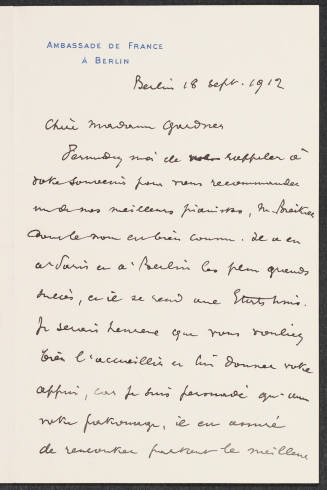 AMBASSADE DE FRANCE
À BERLIN
Berlin 18 sept. 1912
Chère Madame Gardner
Permettez moi de me rappeler à
votre souvenir pour vous recommander
un de nos meilleurs pianistes, M. Breitner
dont le nom est bien connu. Il a eu
à Paris et à Berlin les plus grands
succès, et il se rend aux Etats Unis.
Je serais heureux que vous vouliez
bien l'accueillir et lui donner votre
appui, car je suis persuadé qu'avec
votre patronage, il est assuré
de rencontrer partout le meilleur